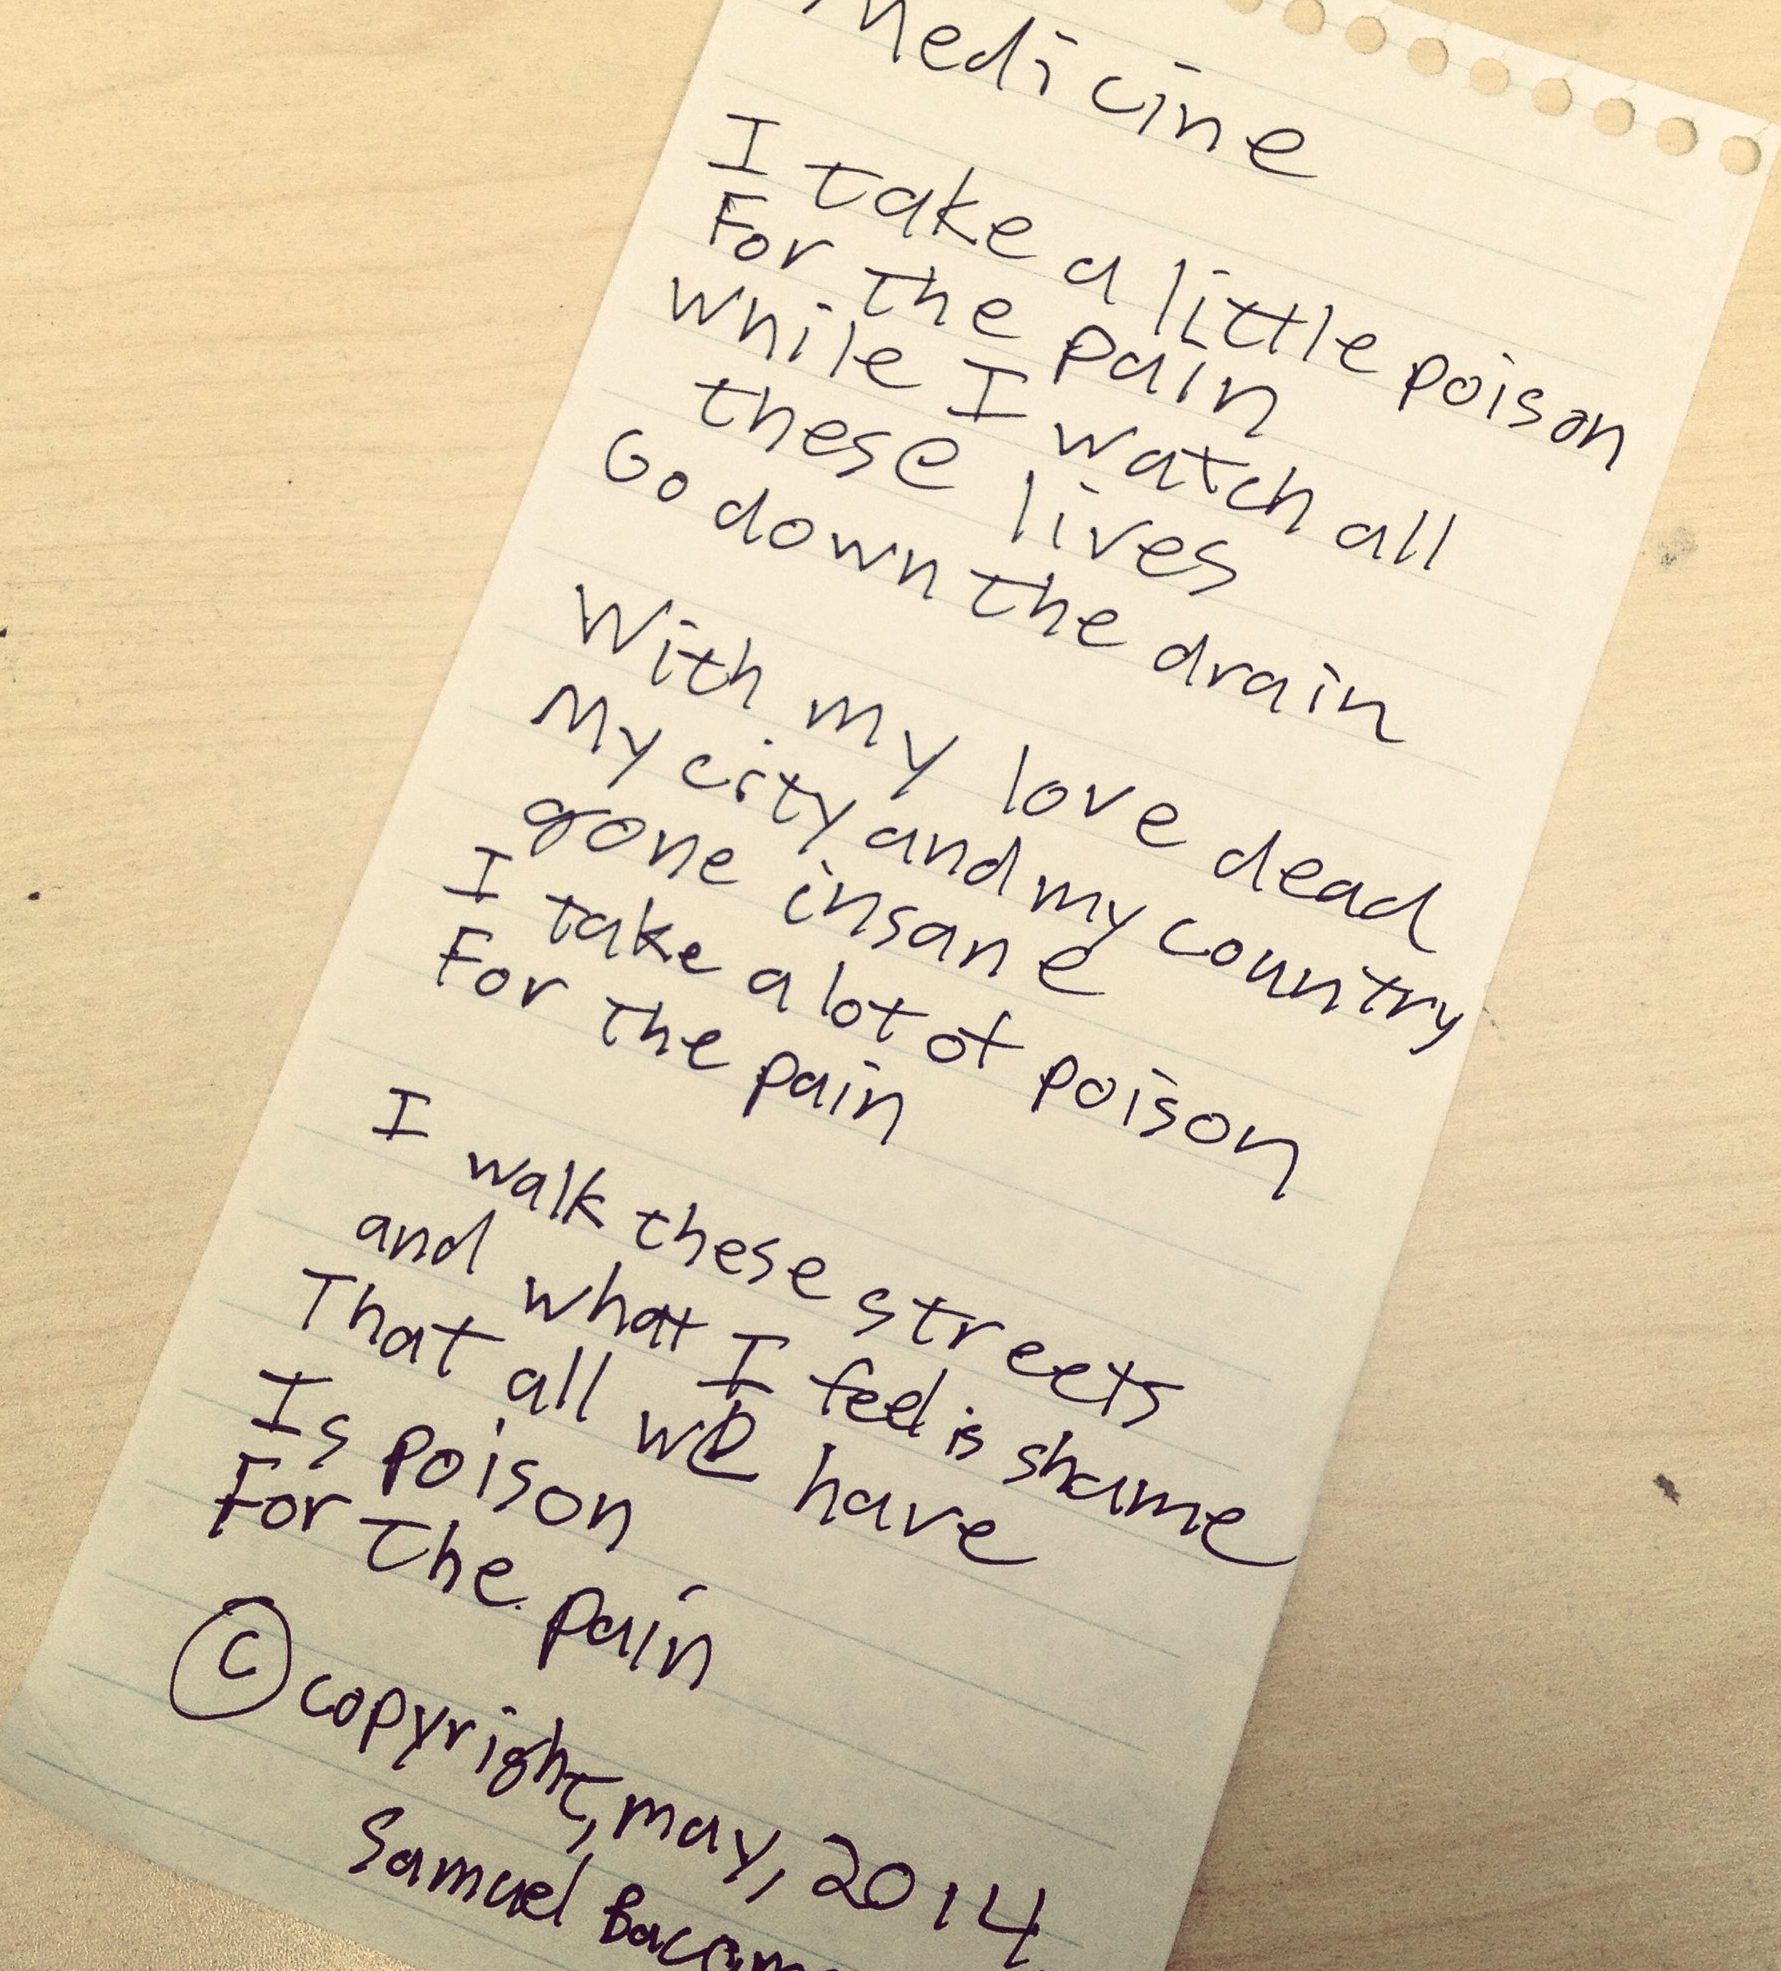 Medicine
I take a little poison
For the pain
While I watch all
these lives
Go down the drain
With my love dead
My city and my country
gone insane
I take a lot of poison
For the pain
I walk these streets
and what I feel is shame
That all we have
Is poison
For the pain
© copyright, may, 2014
Samuel